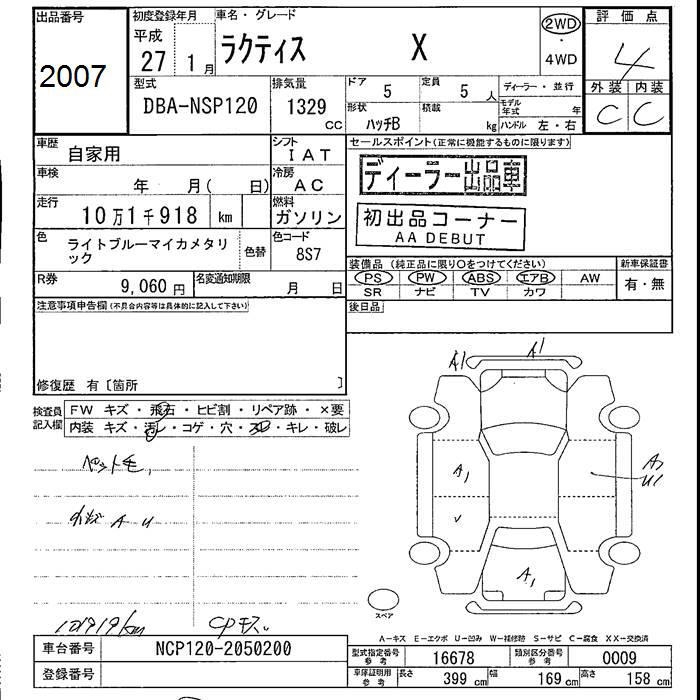 出品番号
2007
初度登録年月
平成
27 1月
車名・グレード
ラクティス X
2WD
・
4WD
評価点
4
外装 内装
C C
型式
DBA-NSP120
排気量
1329
CC
ドア 5
定員 5 人
形状 ハッチB
積載 kg
ディーラー・並行
モデル年式 年
ハンドル 左・右
車歴
自家用
シフト
IAT
車検
年 月( 日)
冷房
AC
走行
10万1千918 km
燃料
ガソリン
色
ライトブルーマイカメタリック
色替
色コード
8S7
R券
9,060 円
名変通知期限
月 日
セールスポイント(正常に機能するものに限ります)
ディーラー出品車
初出品コーナー
AA DEBUT
装備品(純正品に限り○をつけてください)
PS PW ABS エアB AW
SR ナビ TV カワ
新車保証書
有・無
後日品
注意事項申告欄(不具合内容等は具体的に記入して下さい)
修復歴 有〔箇所 〕
検査員記入欄
FW キズ・飛石・ヒビ割・リペア跡・×要
内装 キズ・汚レ・コゲ・穴・スレ・キレ・破レ
ペット毛,
小キズ A U
101919km CPキズ
A1
A1
A1
A1
スペア
A-キズ E-エクボ U-凹み W-補修跡 S-サビ C-腐食 XX-交換済
車台番号
NCP120-2050200
登録番号
型式指定番号
参考
16678
類別区分番号
参考
0009
車庫証明用
参考
長さ 399 cm
幅 169 cm
高さ 158 cm